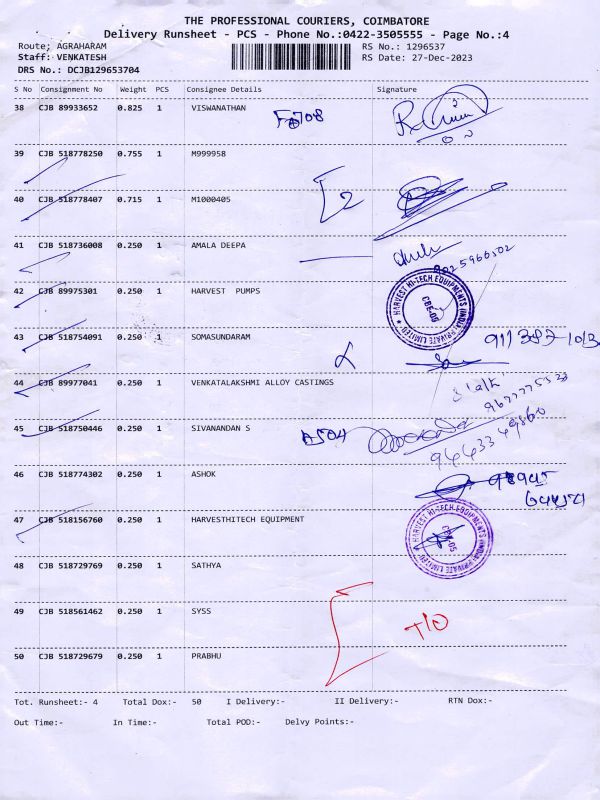 THE PROFESSIONAL COURIERS, COIMBATORE
Delivery Runsheet - PCS - Phone No.:0422-3505555 - Page No.:4
Route; AGRAHARAM RS No.: 1296537
Staff: VENKATESH RS Date: 27-Dec-2023
DRS No.: DCJB129653704
S No Consignment No Weight PCS Consignee Details Signature
38 CJB 89933652 0.825 1 VISWANATHAN
39 CJB 518778250 0.755 1 M999958
40 CJB 518778407 0.715 1 M1000405
2
41 CJB 518736008 0.250 1 AMALA DEEPA
42 CJB 89975301 0.250 1 HARVEST PUMPS
HARVEST HI-TECH EQUIPMENTS (INDIA) PRIVATE LIMITED
CBE-05
43 CJB 518754091 0.250 1 SOMASUNDARAM
44 CJB 89977041 0.250 1 VENKATALAKSHMI ALLOY CASTINGS
45 CJB 518750446 0.250 1 SIVANANDAN S A504
9443349860
46 CJB 518774302 0.250 1 ASHOK
47 CJB 518156760 0.250 1 HARVESTHITECH EQUIPMENT
HARVEST HI-TECH EQUIPMENTS (INDIA) PRIVATE LIMITED
CBE-05
48 CJB 518729769 0.250 1 SATHYA
49 CJB 518561462 0.250 1 SYSS T/O
50 CJB 518729679 0.250 1 PRABHU
Tot. Runsheet:- 4 Total Dox:- 50 I Delivery:- II Delivery:- RTN Dox:-
Out Time:- In Time:- Total POD:- Delvy Points:-